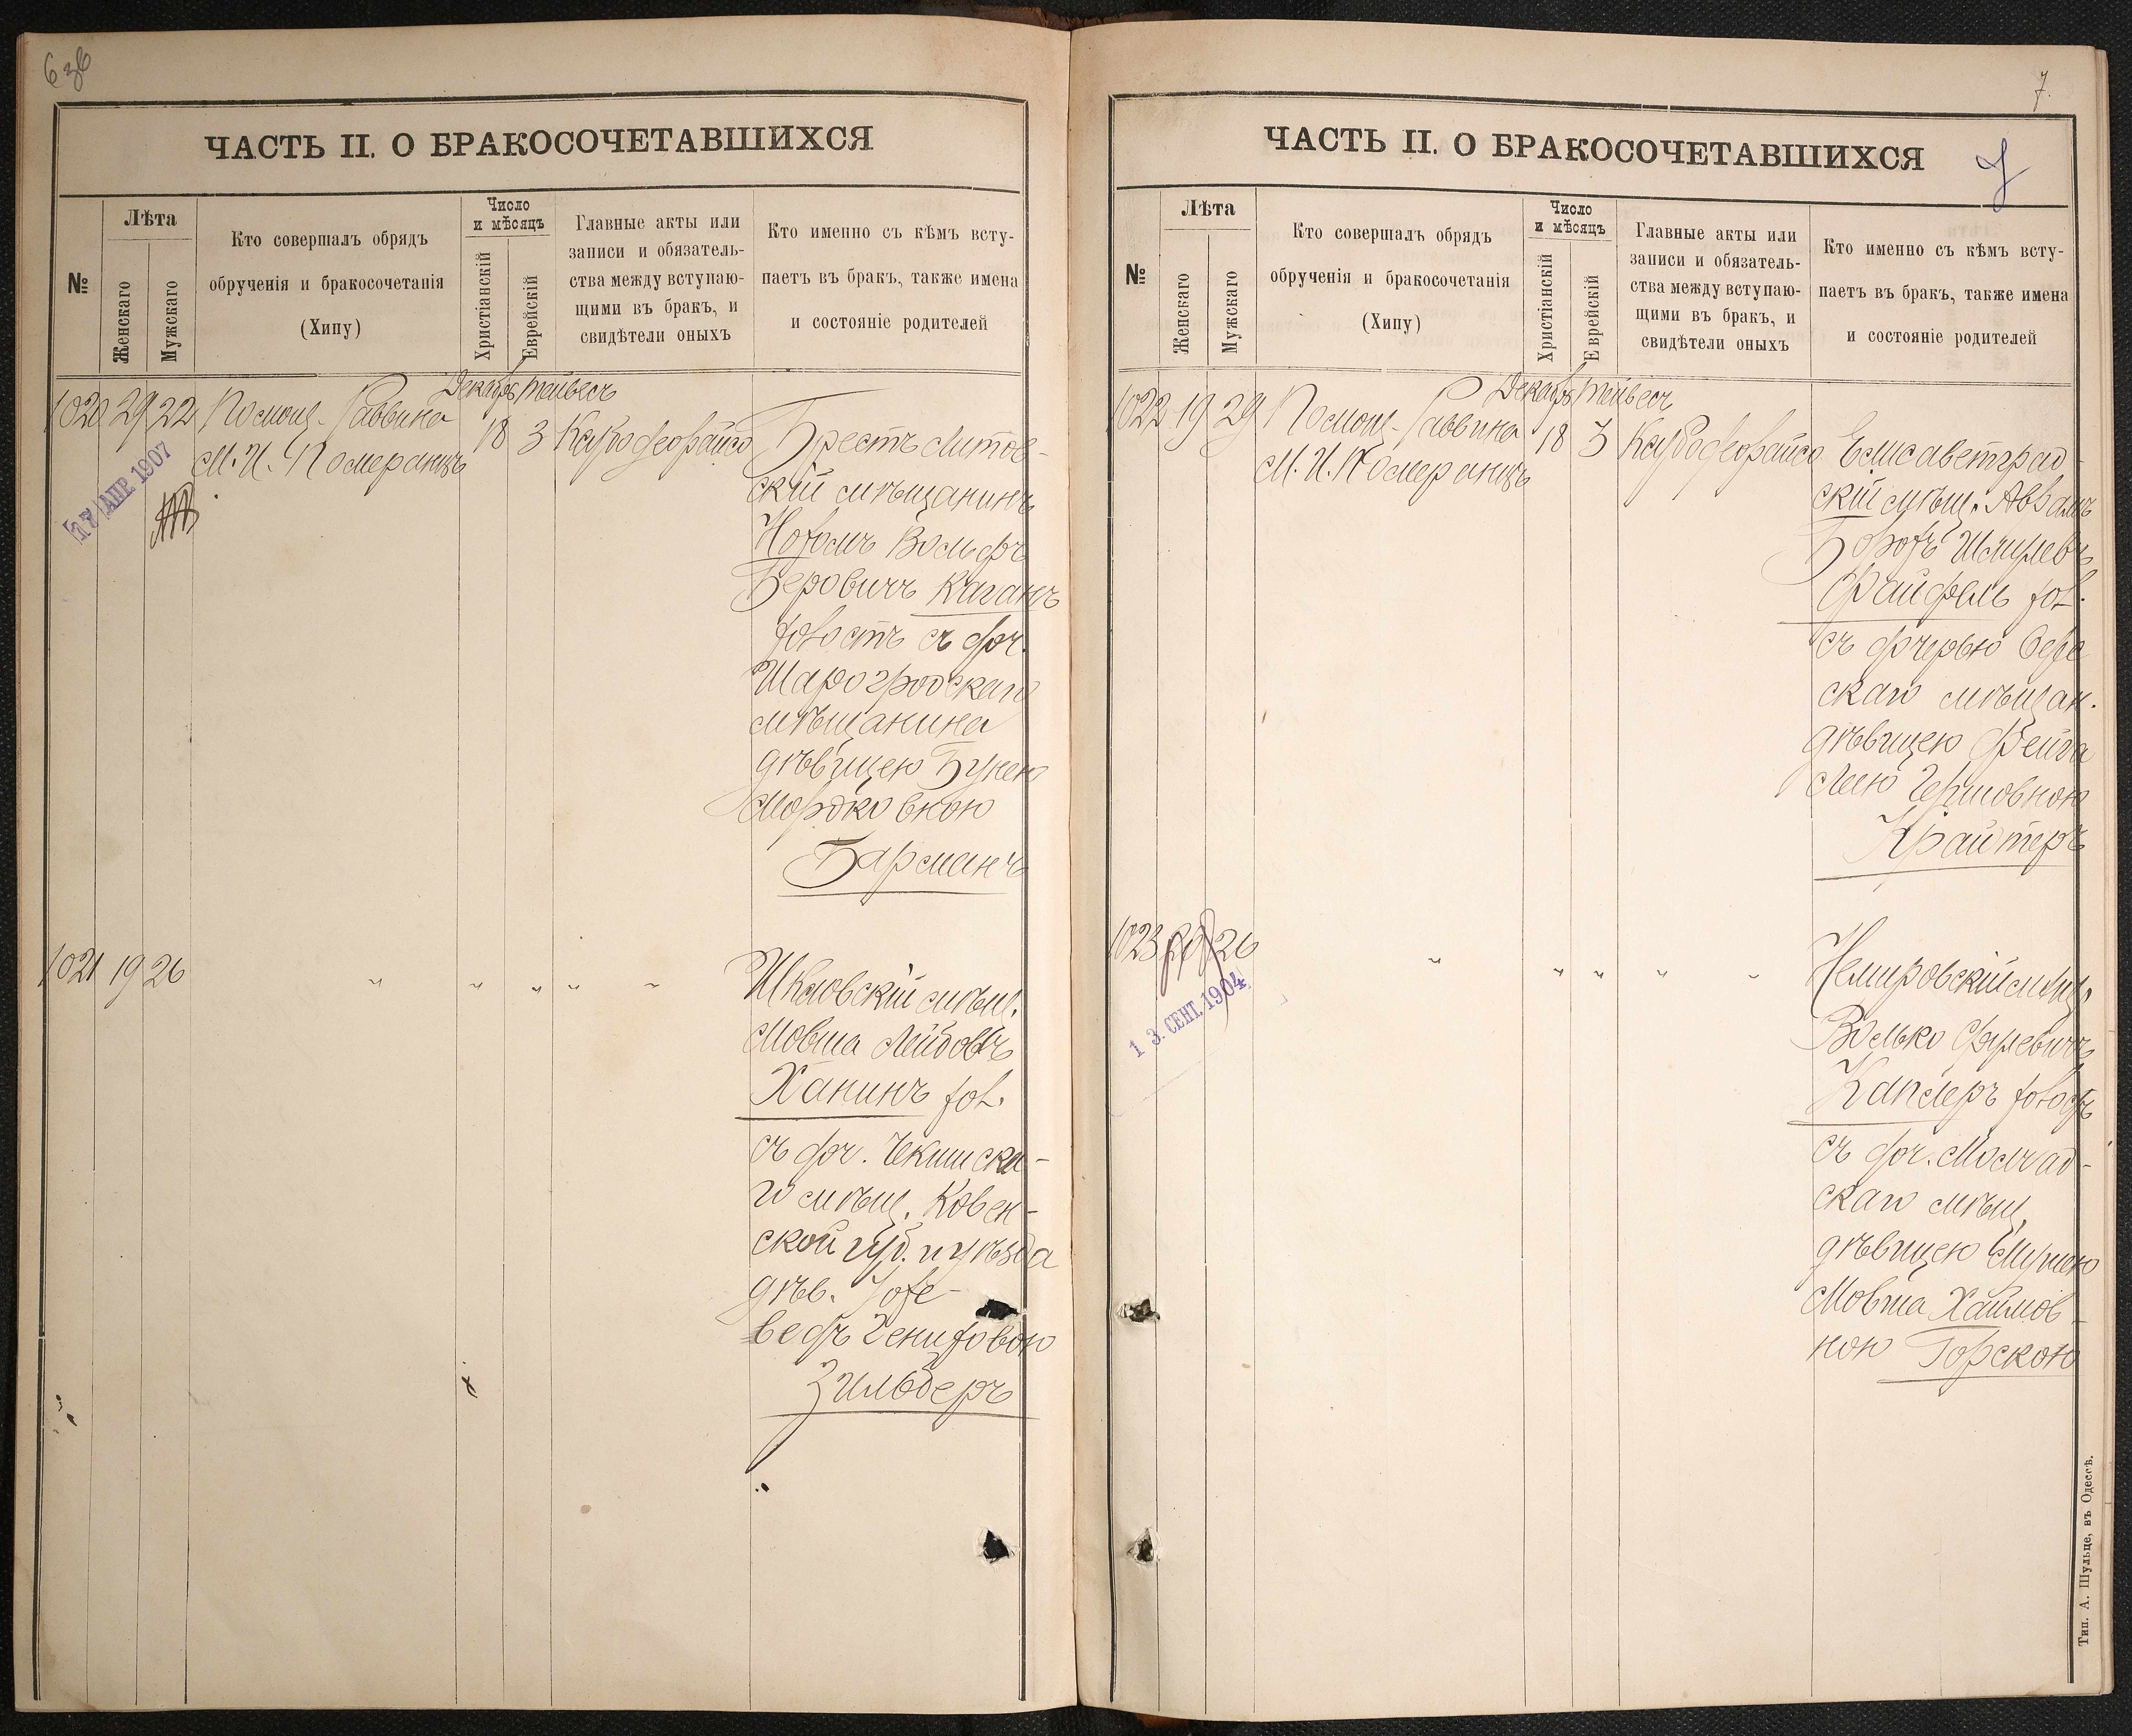 6 об
ЧАСТЬ II. О БРАКОСОЧЕТАВШИХСЯ
№
Лѣта
Женскаго
Мужскаго
Кто совершалъ обрядъ
обрученія и бракосочетанія
(Хипу)
Число
и мѣсяцъ
Христіанскій
Еврейскій
Главные акты или
записи и обязатель-
ства между вступаю-
щими въ бракъ, и
свидѣтели оныхъ
Кто именно съ кѣмъ всту-
паетъ въ бракъ, также имена
и состояніе родителей
Декабрь Тейвесъ
1020 29 22 Помощ. Раввина 18 3
М. И. Померанцъ
17 АПР. 1907
Брестъ Литов-
скій мѣщанинъ
Вольфъ
Беровичъ Каганъ
холостъ съ доч.
Шарогродскаго
мѣщанина
дѣвицею Бунею
Мордковною
Барманъ
1021 19 26 " " " " "
Шкловскій мѣщ.
Мовша Лейбовъ
Ханинъ хол.
съ доч. Чекишска-
го мѣщ. Ковен-
ской губ. и уѣзда
дѣв. Іохе-
ведъ
Зильберъ
7.
7
ЧАСТЬ II. О БРАКОСОЧЕТАВШИХСЯ
№
Лѣта
Женскаго
Мужскаго
Кто совершалъ обрядъ
обрученія и бракосочетанія
(Хипу)
Число
и мѣсяцъ
Христіанскій
Еврейскій
Главные акты или
записи и обязатель-
ства между вступаю-
щими въ бракъ, и
свидѣтели оныхъ
Кто именно съ кѣмъ всту-
паетъ въ бракъ, также имена
и состояніе родителей
Декабрь Тейвесъ
1022 19 29 Помощ. Раввина 18 3
М. И. Померанцъ
Елисаветград-
скій мѣщ. Авраамъ
Борохъ Шмулевъ
Файфель хол.
съ дочерью Одес
скаго мѣщан.
дѣвицею Фейга
Лею Гершовною
Крайтеръ
1023 20 26 " " " " "
13. СЕНТ. 1904
Немировскій мѣщ.
Волько
Каплеръ холостъ
съ доч. Молчад-
скаго мѣщ.
дѣвицею
Мовша Хаимов-
ною Горскою
Тип. А. Шульце, въ Одессѣ.